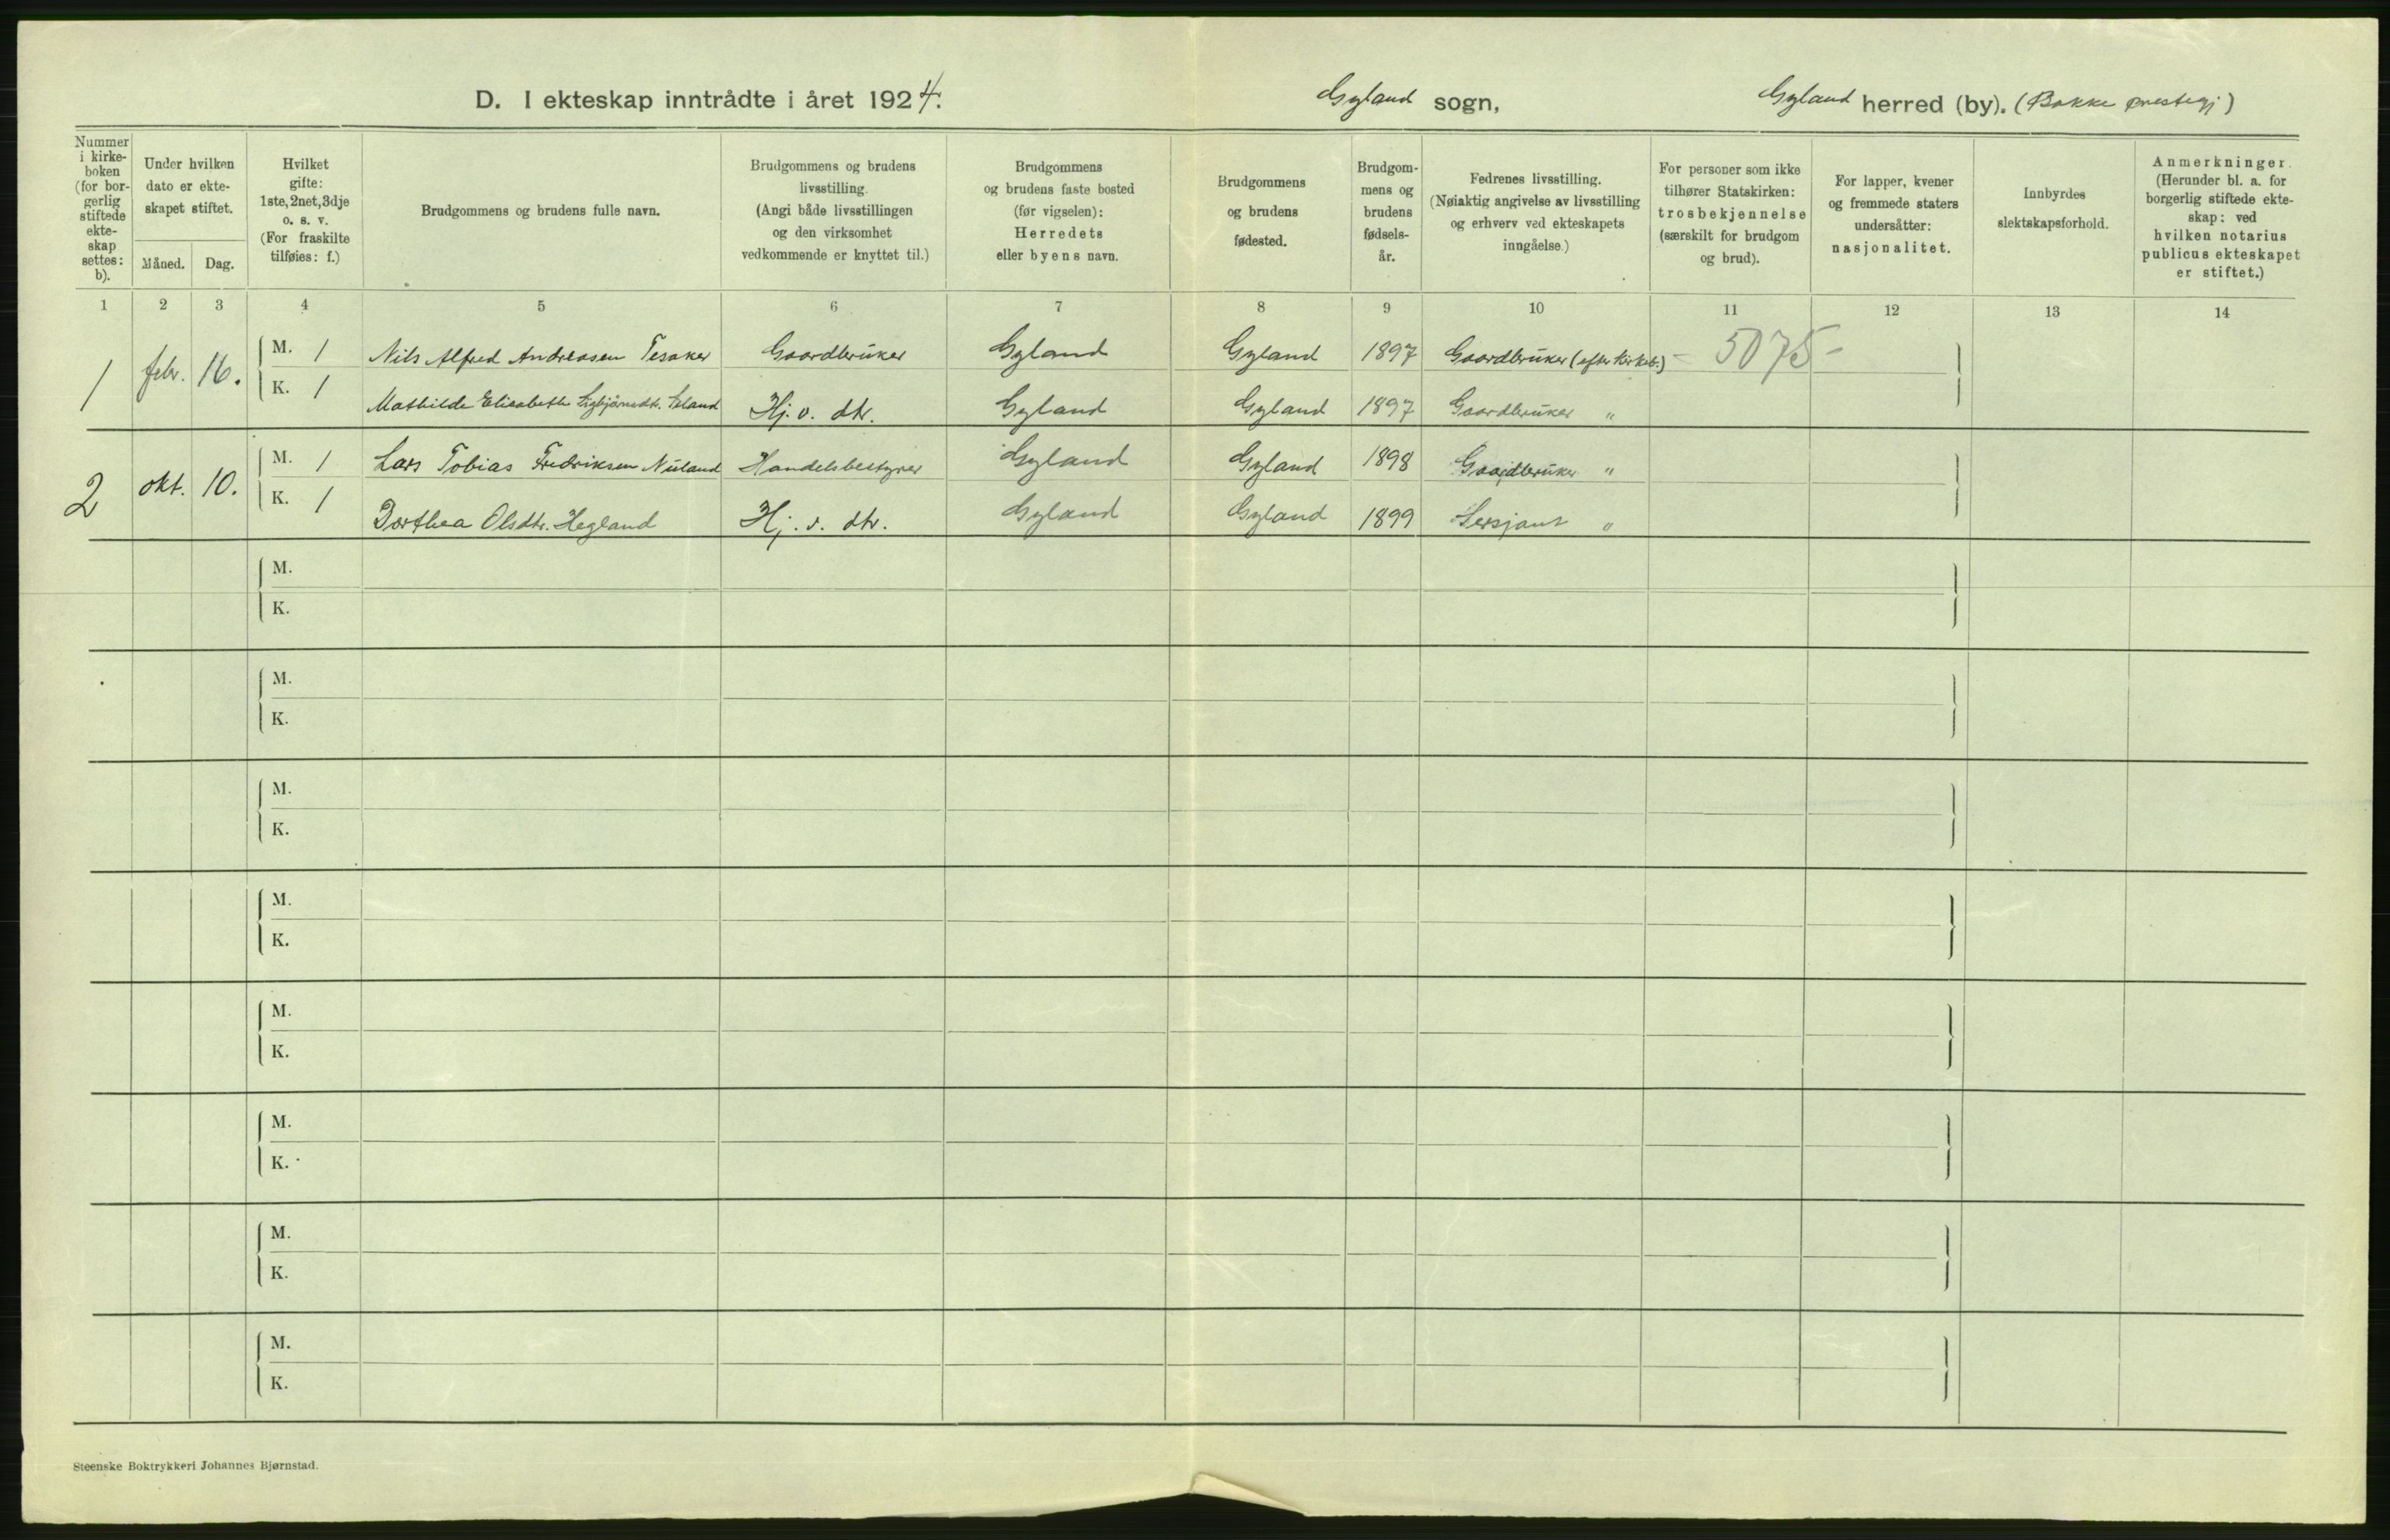 D. I ekteskap inntrådte i året 1924. Gyland sogn, Gyland herred (by). (Bakke prestegj)
Nummer i kirke-boken (for bor-gerlig stiftede ekte-skap settes: b).
Under hvilken dato er ekte-skapet stiftet.
Måned. Dag.
Hvilket gifte: 1ste, 2net, 3dje o. s. v. (For fraskilte tilføies: f.)
Brudgommens og brudens fulle navn.
Brudgommens og brudens livsstilling. (Angi både livsstillingen og den virksomhet vedkommende er knyttet til.)
Brudgommens og brudens faste bosted (før vigselen): Herredets eller byens navn.
Brudgommens og brudens fødested.
Brudgom-mens og brudens fødsels-år.
Fedrenes livsstilling. (Nøiaktig angivelse av livsstilling og erhverv ved ekteskapets inngåelse.)
For personer som ikke tilhører Statskirken: trosbekjennelse (særskilt for brudgom og brud).
For lapper, kvener og fremmede staters undersåtter: nasjonalitet.
Innbyrdes slektskapsforhold.
Anmerkninger. (Herunder bl. a. for borgerlig stiftede ekte-skap: ved hvilken notarius publicus ekteskapet er stiftet.)
1 2 3 4 5 6 7 8 9 10 11 12 13 14
1 febr. 16. M. 1 Nils Alfred Andreasen Tesaker Gaardbruker Gyland Gyland 1897 Gaardbruker (efter kirkeb.) – 5075 –
K. 1 Mathilde Elisabeth Sigbjørnsdtr. Seland Hj. v. dtr. Gyland Gyland 1897 Gaardbruker "
2 okt. 10. M. 1 Lars Tobias Fredriksen Nuland Handelsbestyrer Gyland Gyland 1898 Gaardbruker "
K. 1 Dorthea Olsdtr. Hegland Hj. v. dtr. Gyland Gyland 1899 Sersjant "
M.
K.
M.
K.
M.
K.
M.
K.
M.
K.
M.
K.
M.
K.
M.
K.
Steenske Boktrykkeri Johannes Bjørnstad.